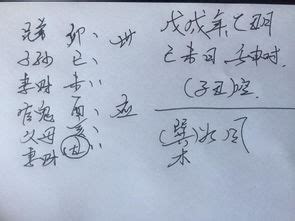 兄弟 卯、世
子孙 巳、
妻财 未、、
官鬼 酉、应
父母 亥、
妻财 丑、、
戊戌年 乙丑月
己未日 壬申时
(子丑)空
(巽木)风